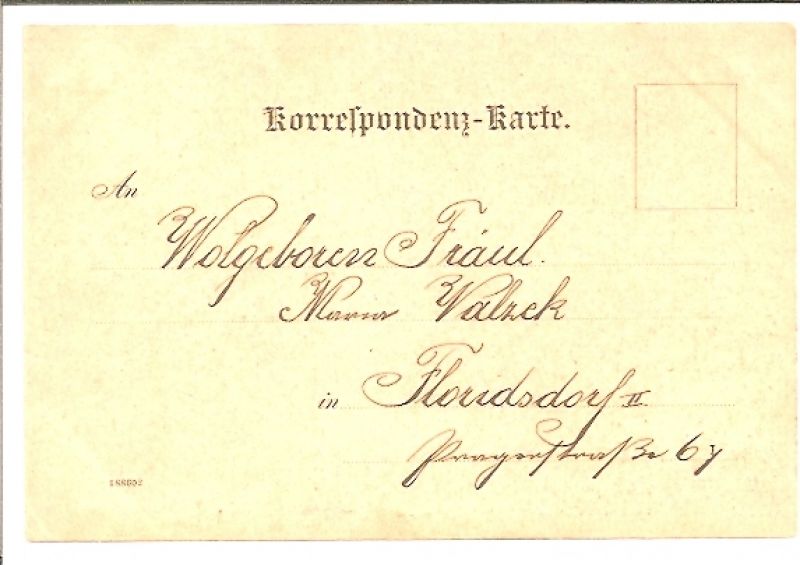 Korrespondenz-Karte.
An
Wolgeboren Fräul.
Maria Walzek
in Floridsdorf II.
Pragerstraße 67
188602